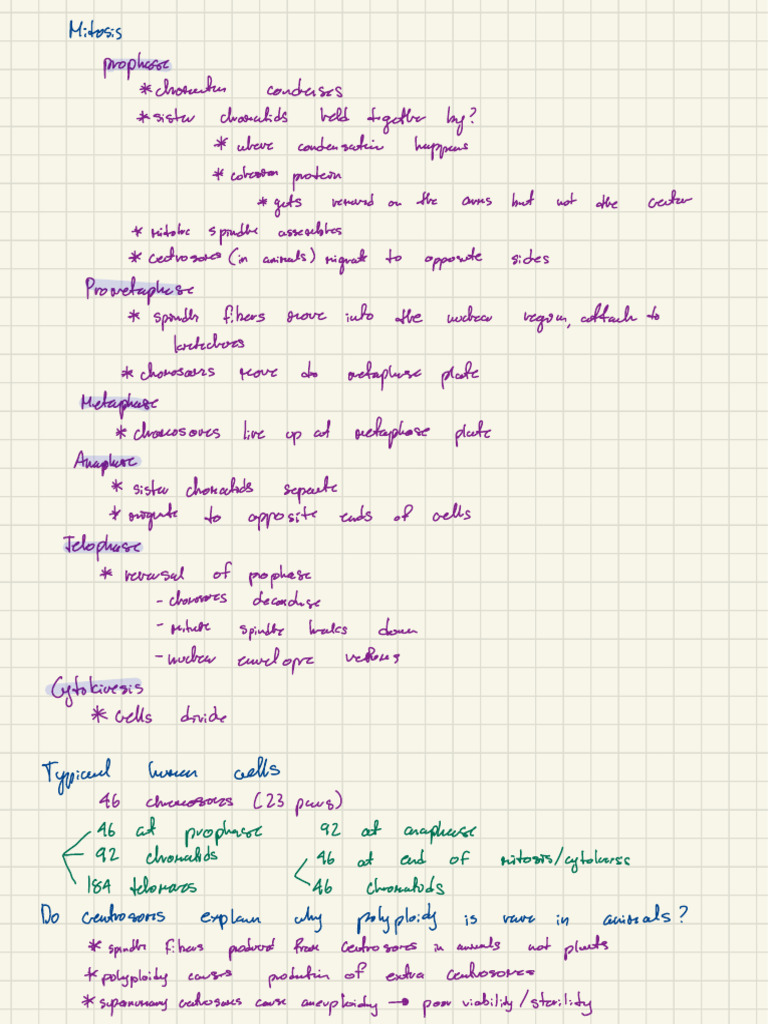 Mitosis
prophase
* chromatin condenses
* sister chromatids held together by?
* where condensation happens
* cohesion protein
* gets removed on the arms but not the center
* mitotic spindle assembles
* centrosomes (in animals) migrate to opposite sides
Prometaphase
* spindle fibers move into the nuclear region, attach to
kinetochores
* chromosomes move to metaphase plate
Metaphase
* chromosomes line up at metaphase plate
Anaphase
* sister chromatids separate
* migrate to opposite ends of cells
Telophase
* reversal of prophase
- chromosomes decondense
- mitotic spindle breaks down
- nuclear envelope reforms
Cytokinesis
* cells divide
Typical human cells
46 chromosomes (23 pairs)
46 at prophase 92 at anaphase
92 chromatids 46 at end of mitosis/cytokinesis
184 telomeres 46 chromatids
Do centrosomes explain why polyploidy is rare in animals?
* spindle fibers produced from centrosomes in animals not plants
* polyploidy causes production of extra centrosomes
* supernumerary centrosomes cause aneuploidy → poor viability/sterility